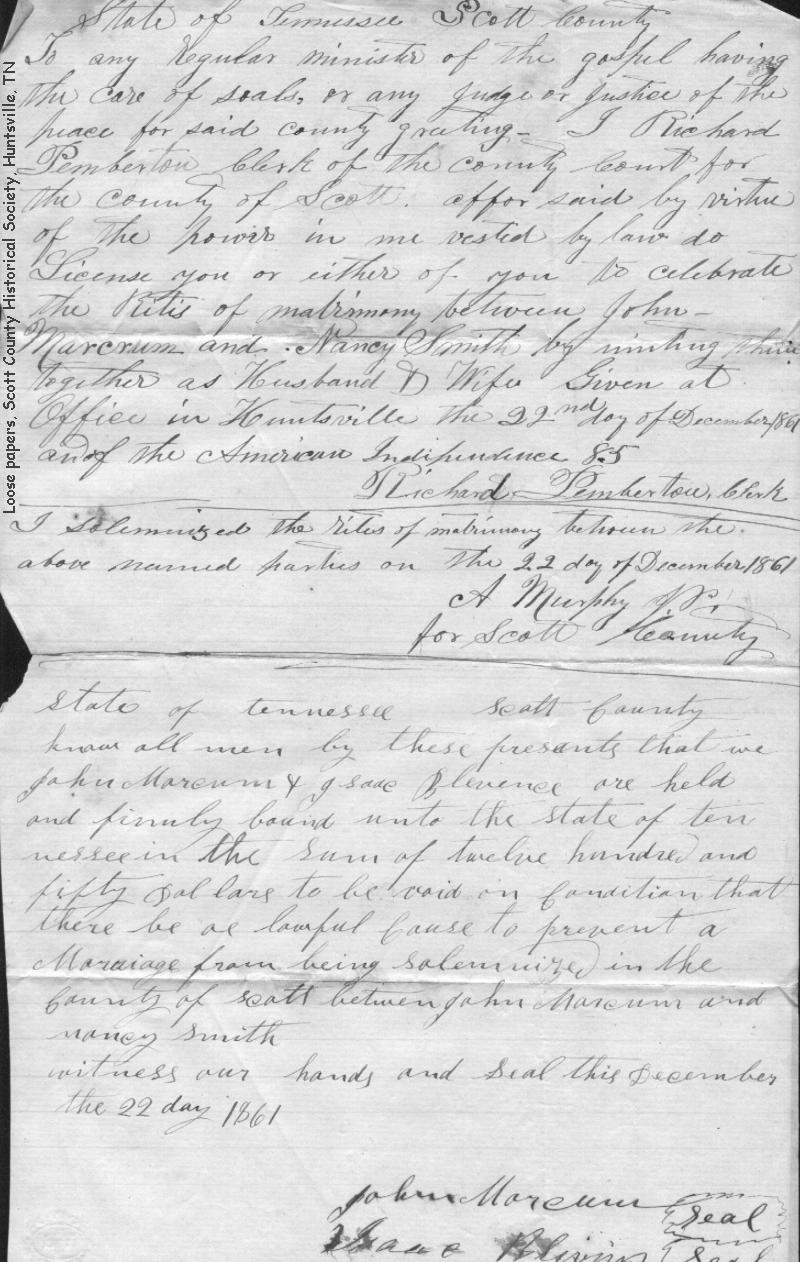 State of Tennessee Scott County
To any regular minister of the gospel having
the care of soals, or any Judge or Justice of the
peace for said county greeting - I Richard
Pemberton Clerk of the county Court for
the county of Scott. affor said by virtue
of the power in me vested by law do
License you or either of you to celebrate
the Ritis of matrimony between John
Marcrum and Nancy Smith by uniting
together as Husband & Wife Given at
Office in Huntsville the 22nd day of December 1861
and of the American Indipendence 85
Richard Pemberton, Clerk
I solemnized the rites of matrimony between the
above named parties on the 22 day of December 1861
A Murphy
for Scott County
State of tennessee scott County
know all men by these presents that we
John Marcum & Isaac Blevence are held
and firmly bound unto the state of ten
nessee in the sum of twelve hundred and
fifty Dollars to be void on Condition that
there be no lawful Cause to prevent a
Maraiage from being solemnized in the
County of scott betwen John Marcum and
nancy smith
witness our hands and seal this December
the 22 day 1861
John Marcum Seal
Isaac Blivins Seal
Loose papers, Scott County Historical Society, Huntsville, TN